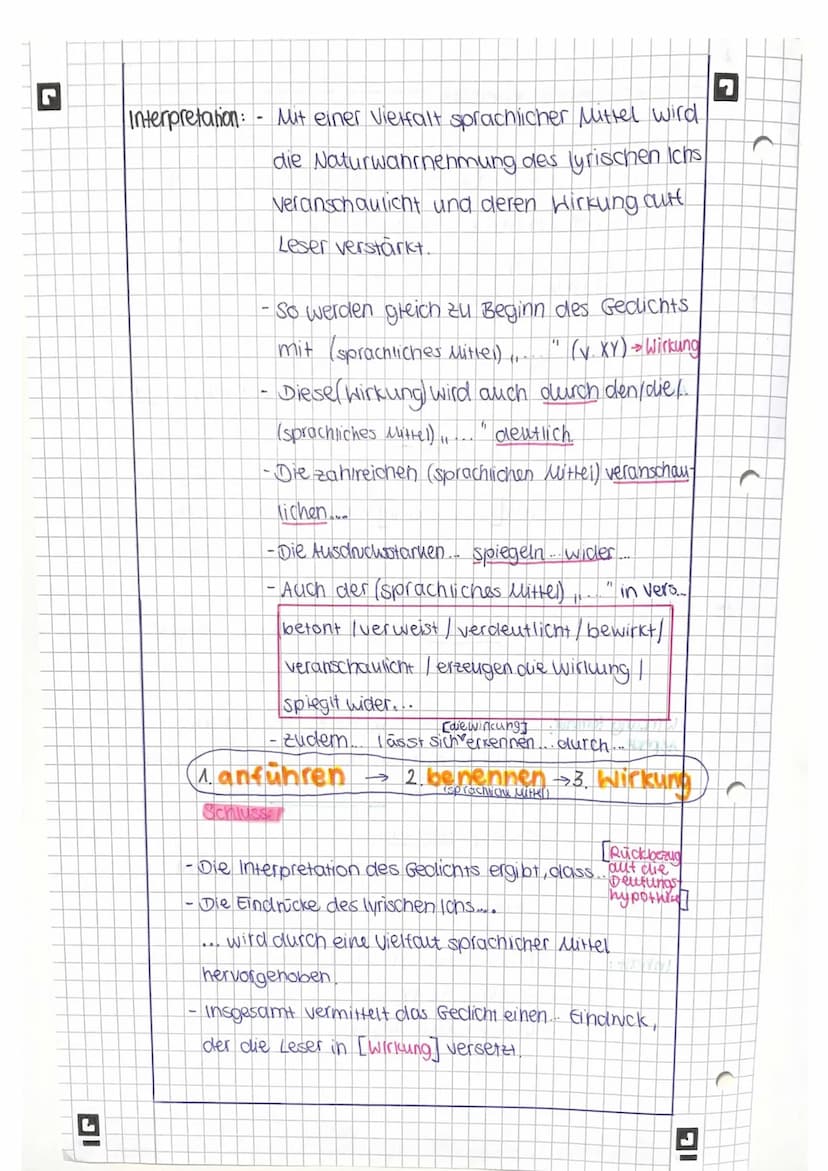 Interpretation: - Mit einer Vielfalt sprachlicher Mittel wird
die Naturwahrnehmung des lyrischen Ichs
veranschaulicht und deren Wirkung auft
Leser verstärkt.
- So werden gleich zu Beginn des Gedichts
mit (sprachliches Mittel) „....." (v. XY) → Wirkung
- Diese (Wirkung) wird auch durch den/die/..
(sprachliches Mittel) „..." deutlich
- Die zahlreichen (sprachlichen Mittel) veranschau-
lichen....
- Die Ausdrucksstarken... spiegeln... wider...
- Auch der (sprachliches Mittel) „...." in Vers...
betont / verweist / verdeutlicht / bewirkt /
veranschaulicht / erzeugen die Wirkung /
spieglt wider...
[die Wirkung]
- zudem... lässt sich erkennen... durch...
1. anführen → 2. benennen → 3. Wirkung
(sprachliche Mittel)
Schlusss
- Die Interpretation des Gedichts ergibt, dass..
[Rückbezug
auf die
Deutungs-
hypothese]
- Die Eindrücke des lyrischen Ichs....
... wird durch eine Vielfalt sprachlicher Mittel
hervorgehoben.
- Insgesamt vermittelt das Gedicht einen... Eindruck,
der die Leser in [Wirkung] versetzt.